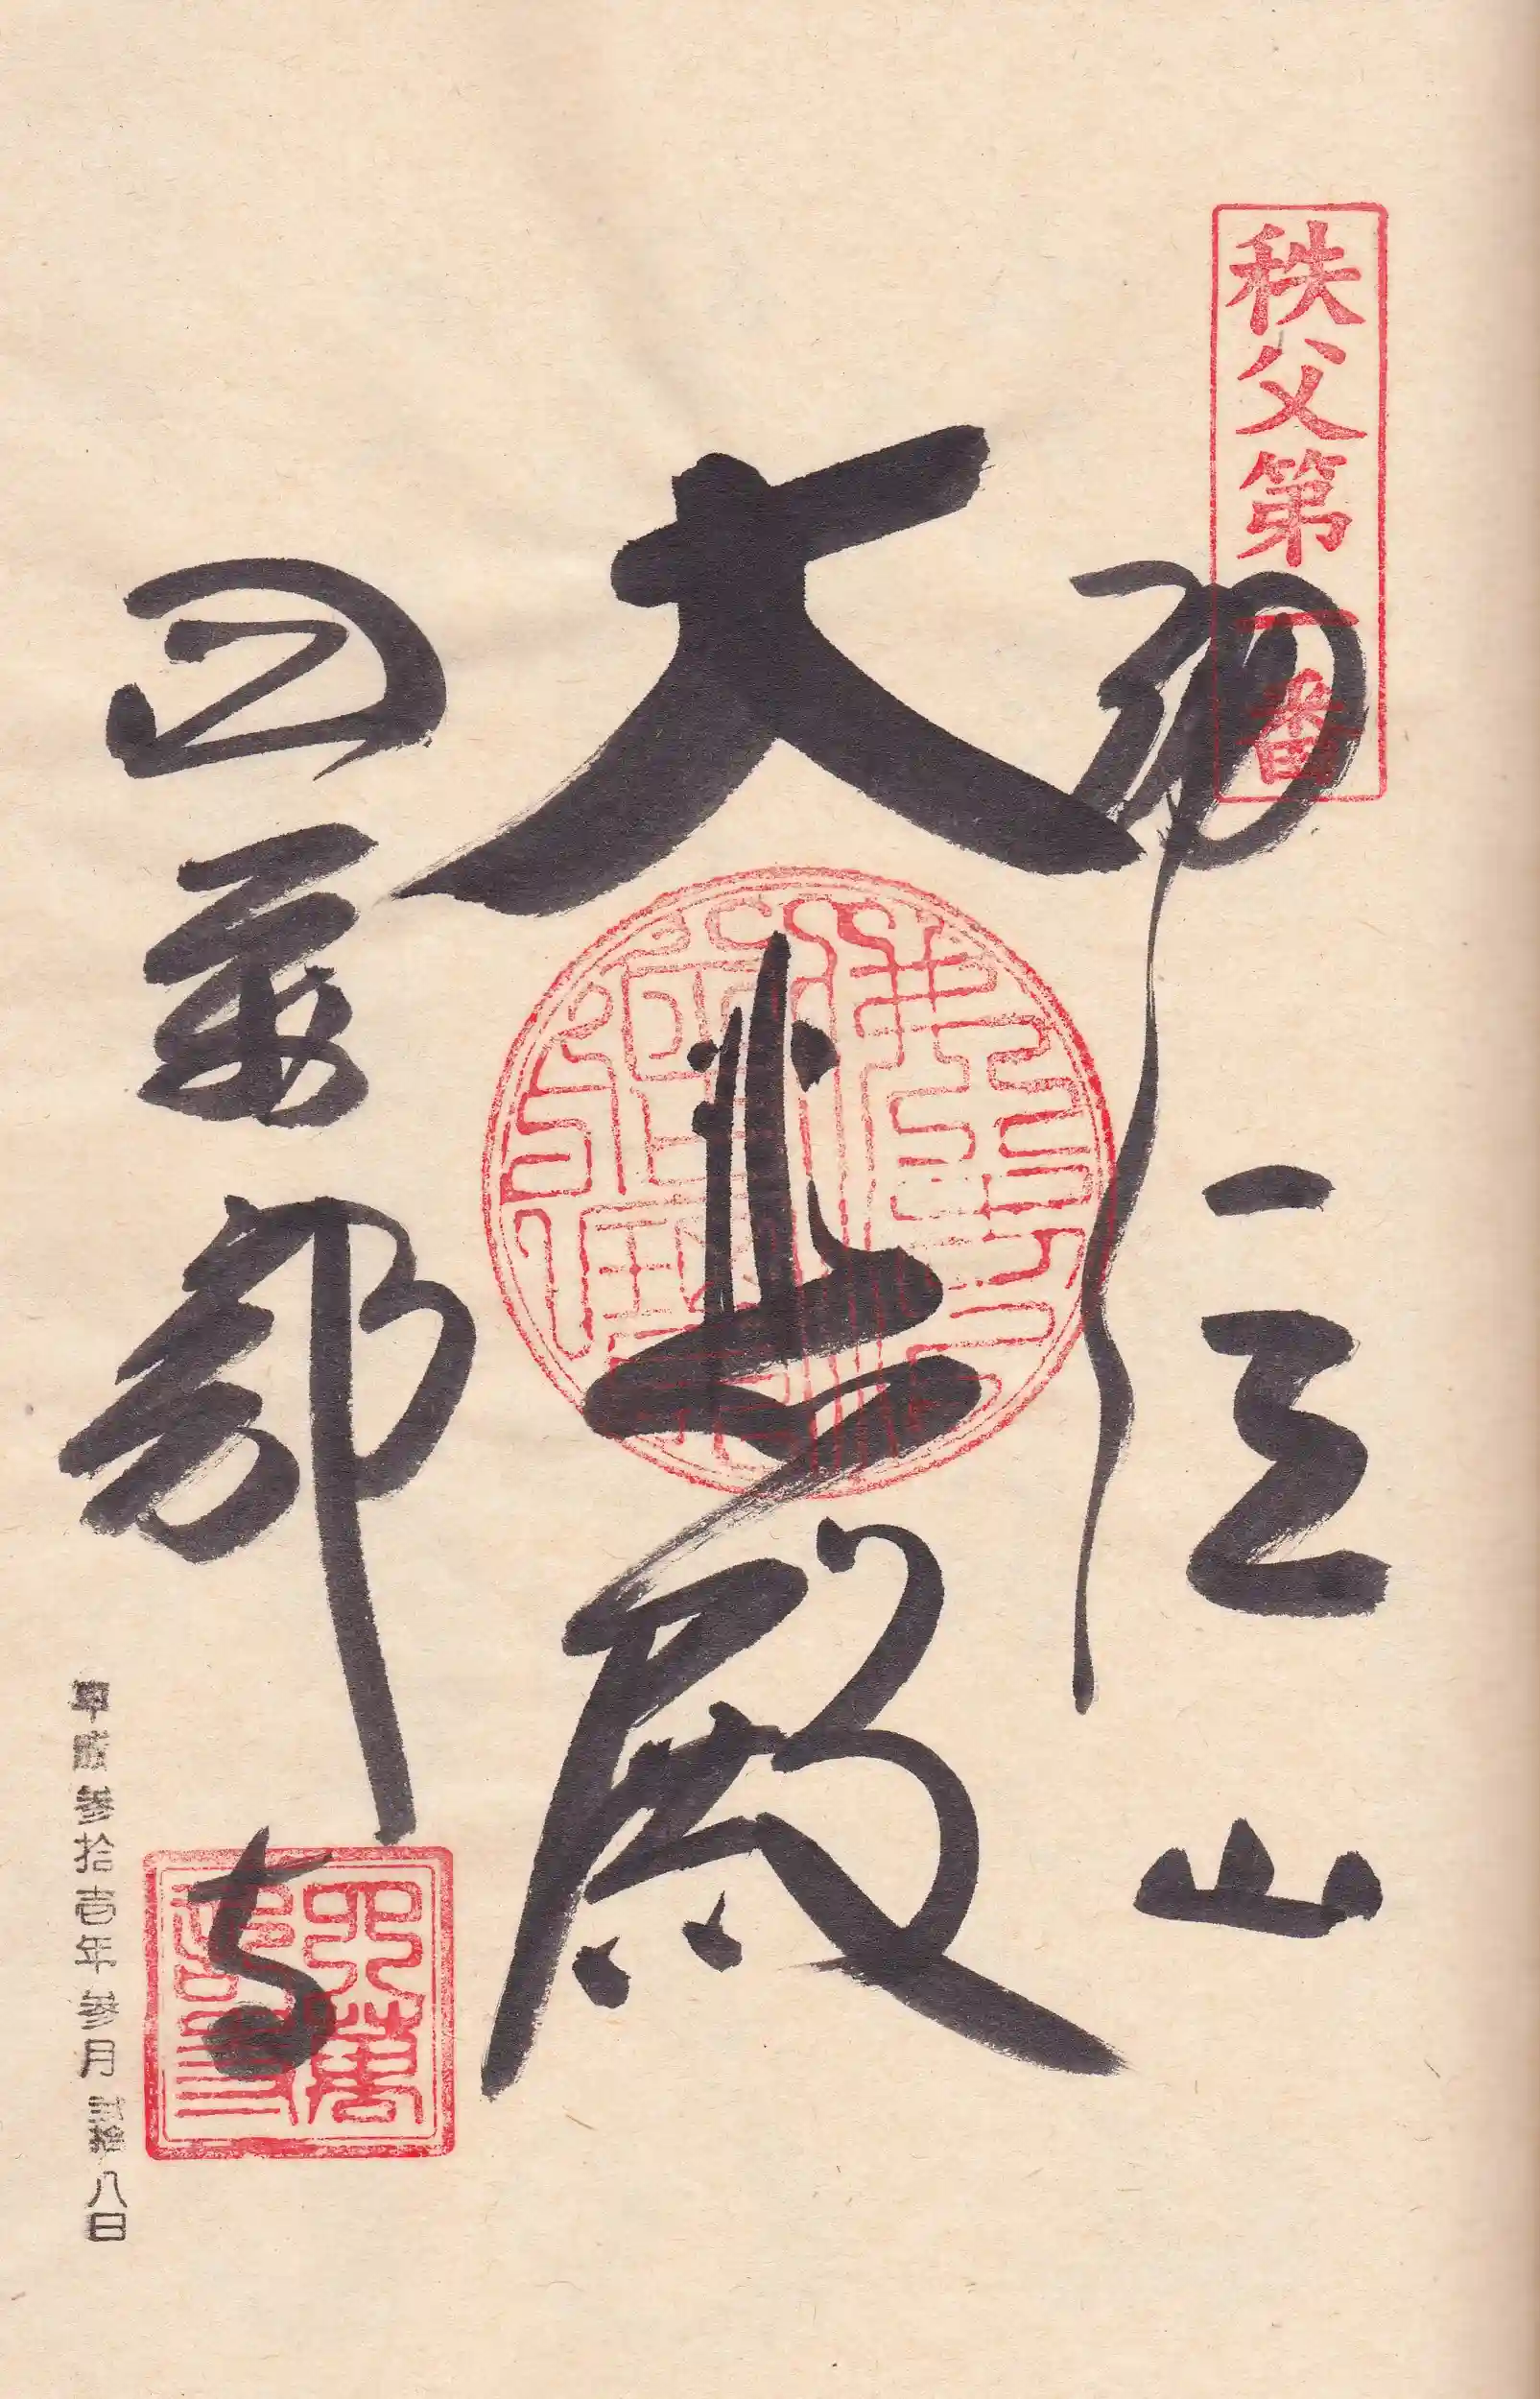 秩父第一番
誦経山
大悲殿
四萬部寺
平成参拾壱年参月弐拾八日